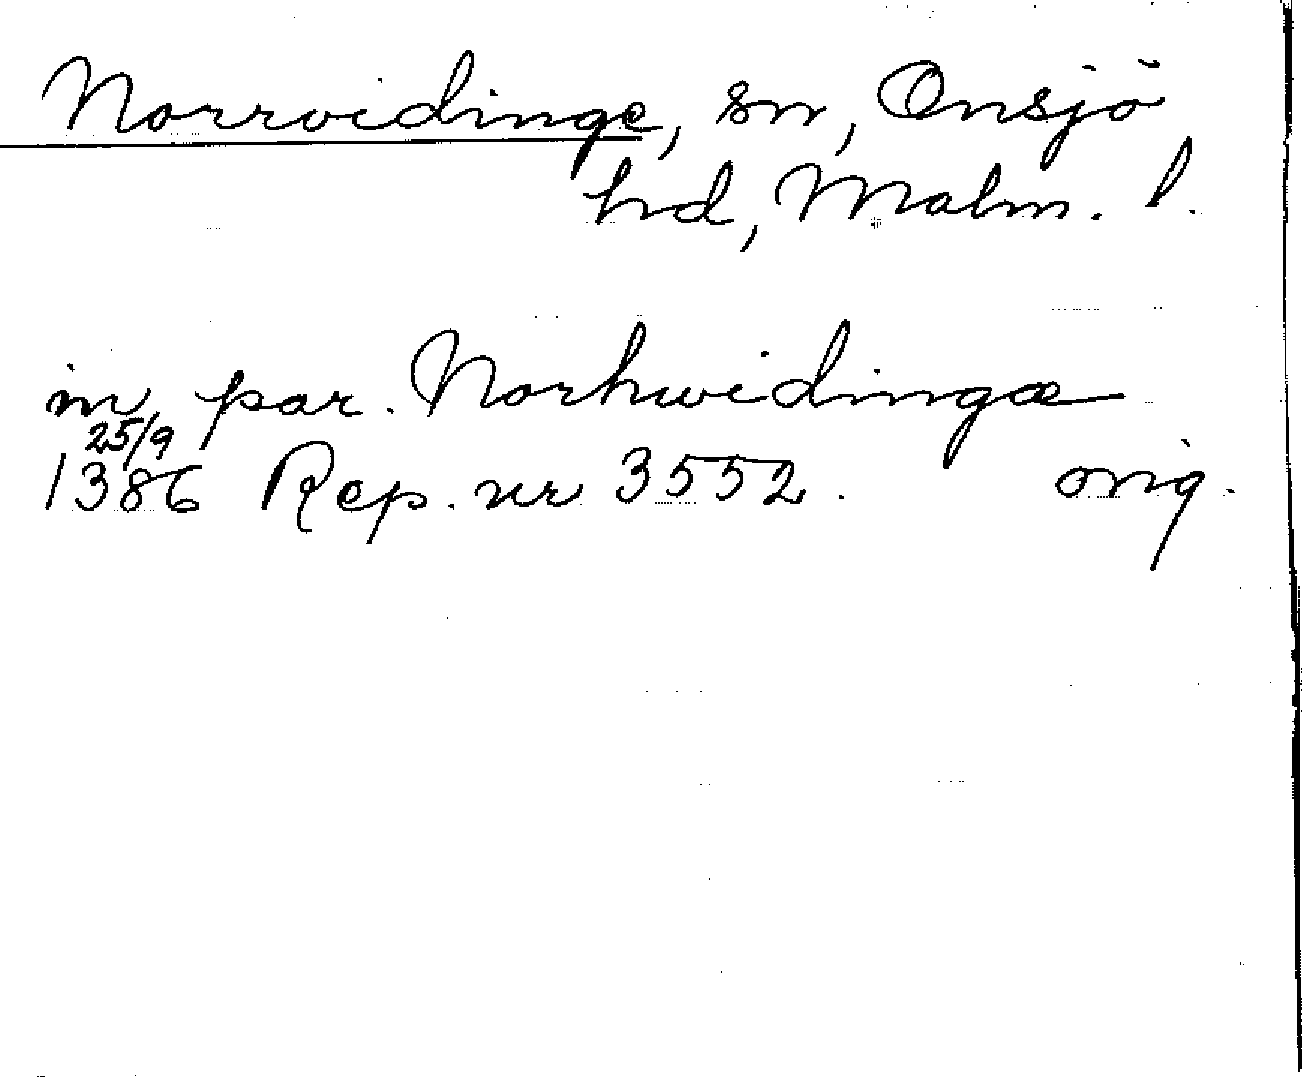 Norrvidinge, sn, Onsjö
hd, Malm. l.
in par. Norhwidingæ
25/9
1386 Rep. nr 3552. orig.